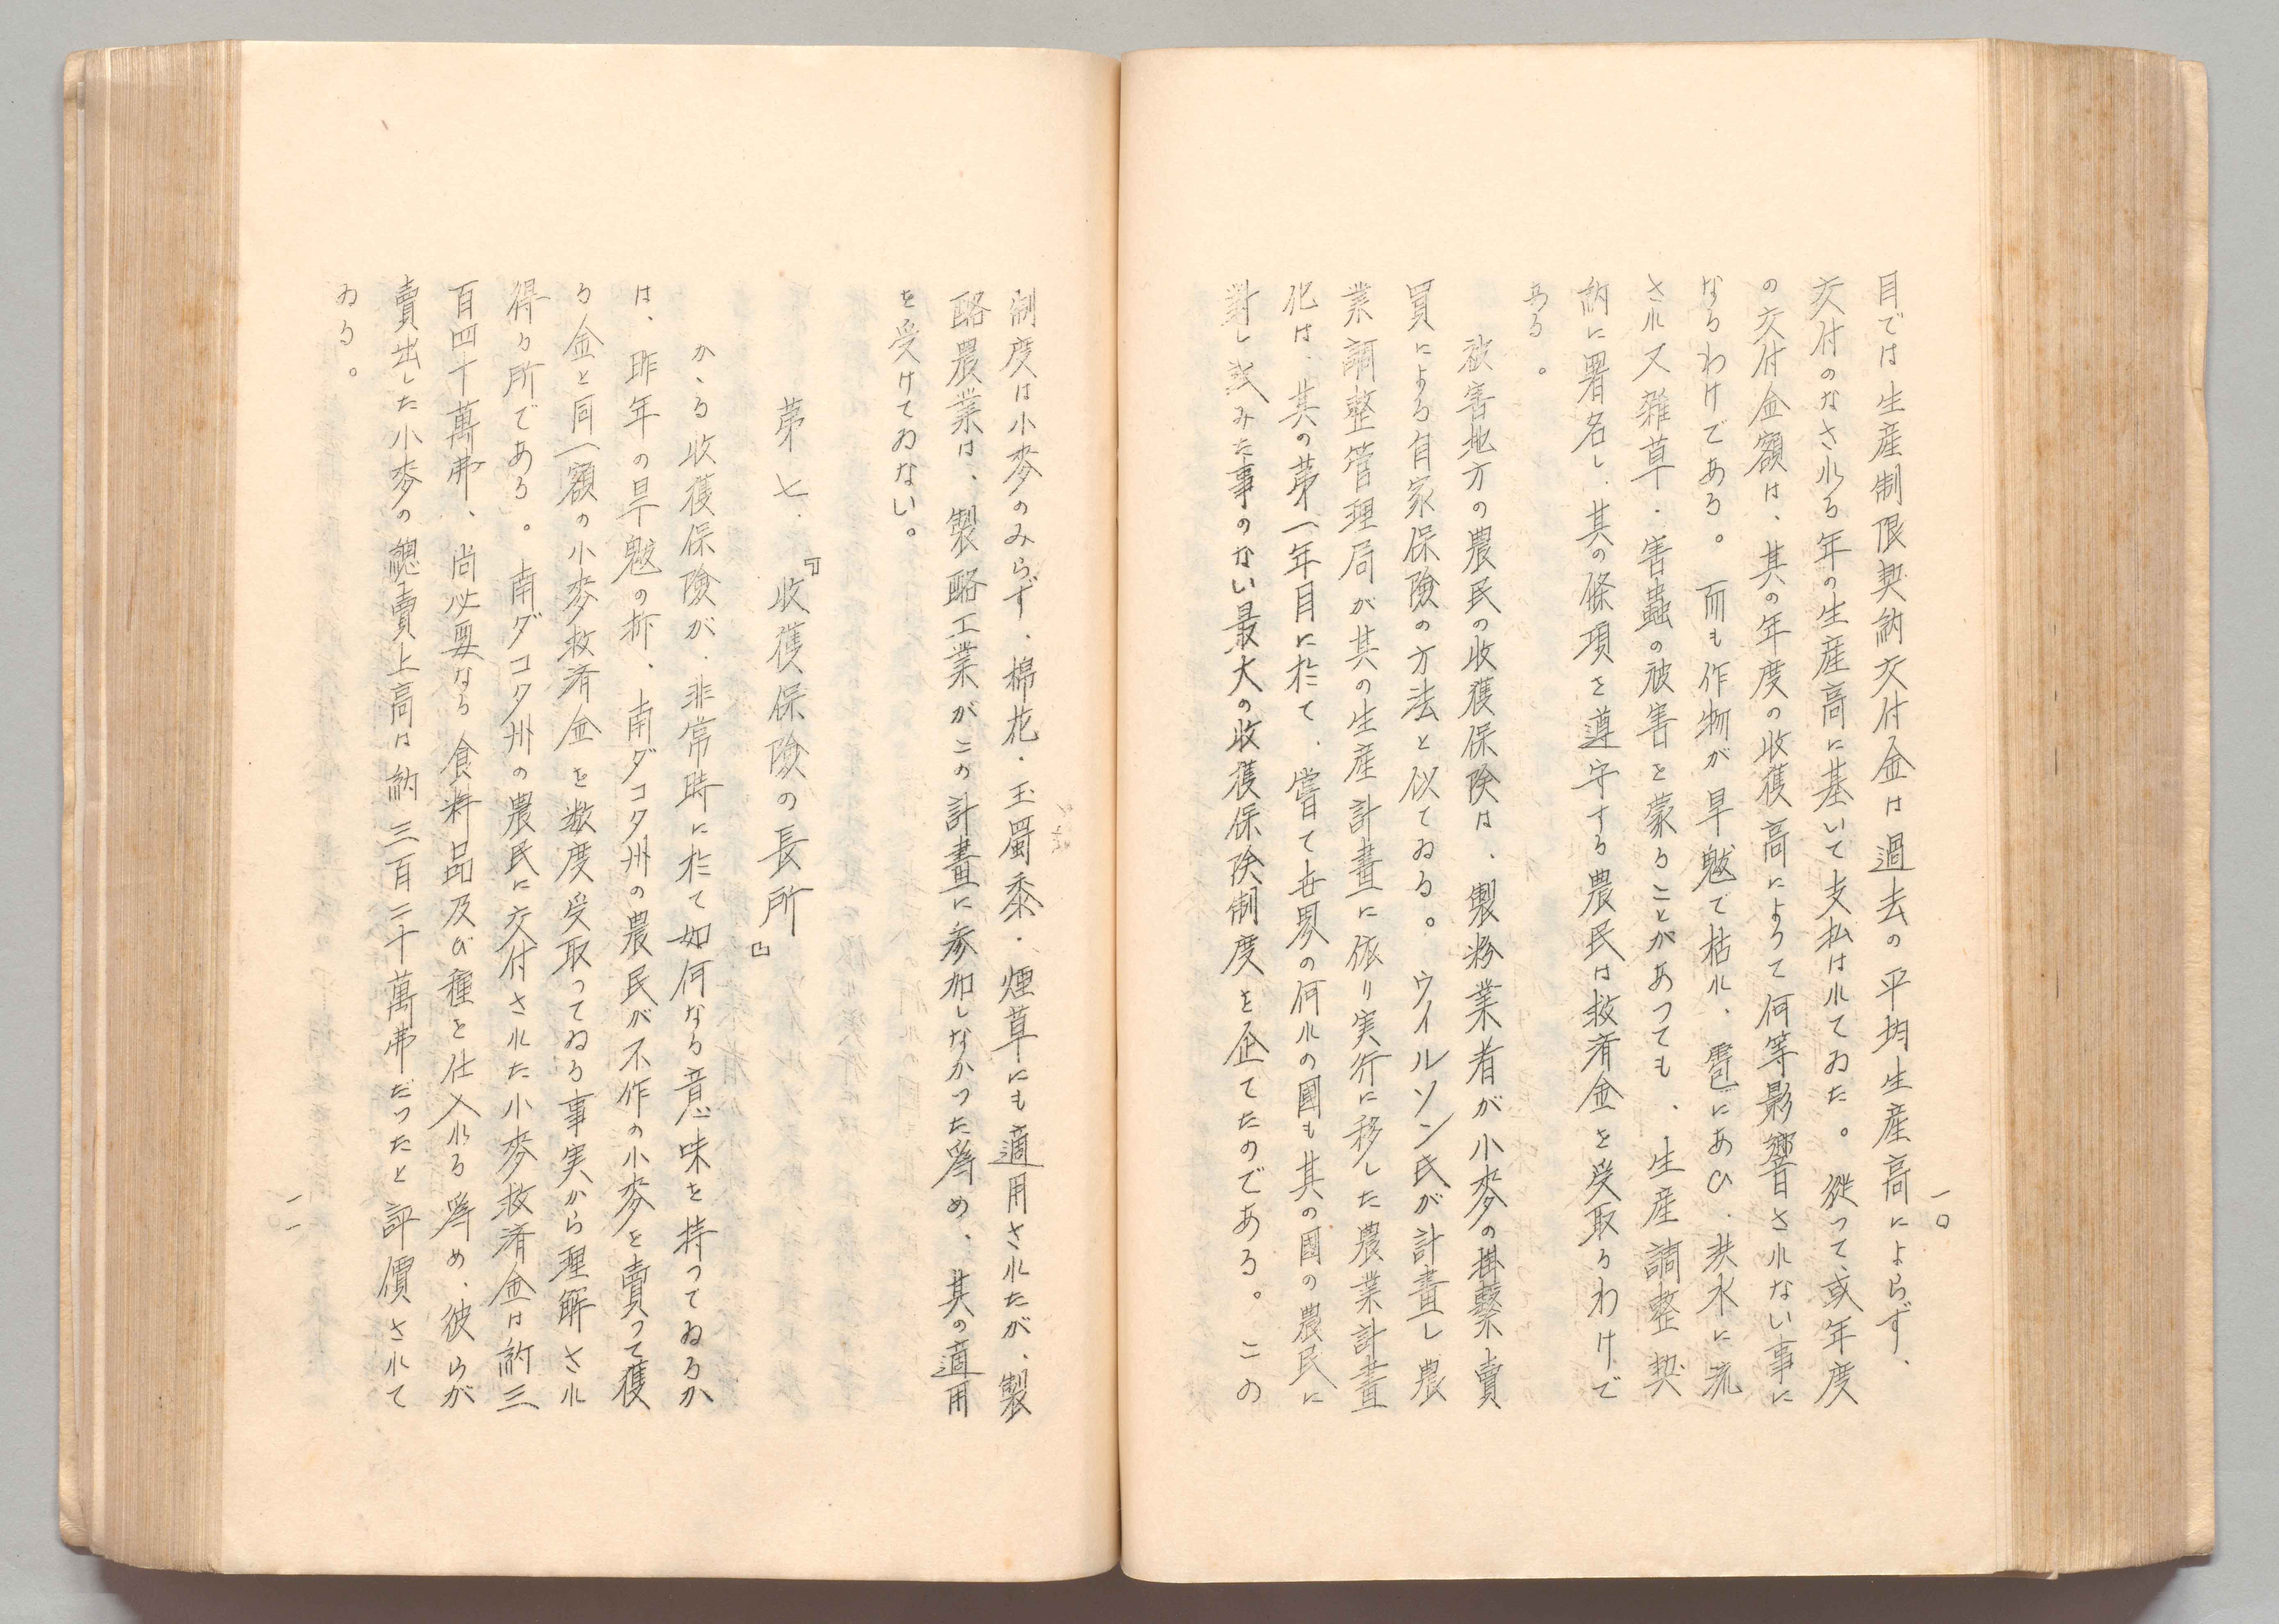 一〇
目では生産制限契約交付金は過去の平均生産高によらず、
交付のなされる年の生産高に基いて支払はれてゐた。従つて、或年度
の交付金額は、其の年度の收獲高によつて何等影響されない事に
なるわけである。而も作物が旱魃で枯れ、雹にあひ、洪水に流
され又雑草・害蟲の被害を蒙ることがあつても、生産調整契
約に署名し、其の條項を遵守する農民は救済金を受取るわけで
ある。
被害地方の農民の收獲保険は、製粉業者が小麥の掛繋賣
買による自家保險の方法と似てゐる。ウイルソン氏が計畫し農
業調整管理局が其の生産計畫に依り実行に移した農業計畫
化は、其の第一年目に於て、嘗て世界の何れの國も其の國の農民に
對し試みた事のない最大の收獲保険制度を企てたのである。この
制度は小麥のみらず、棉花・玉蜀黍・煙草にも適用されたが、製
酪農業は、製酪工業がこの計畫に参加しなかつた爲め、其の適用
を受けてゐない。
第七、『收獲保險の長所』
かゝる收獲保險が、非常時に於て如何なる意味を持つてゐるか
は、昨年の旱魃の折、南ダコタ州の農民が不作の小麥を賣つて獲
る金と同一額の小麥救済金を数度受取つてゐる事実から理解され
得る所である。南ダコタ州の農民に交付された小麥救済金は約三
百四十萬弗、尚必要なる食料品及び種を仕入れる爲め、彼らが
賣出した小麥の總賣上高は約三百二十萬弗だつたと評價されて
ゐる。
一一